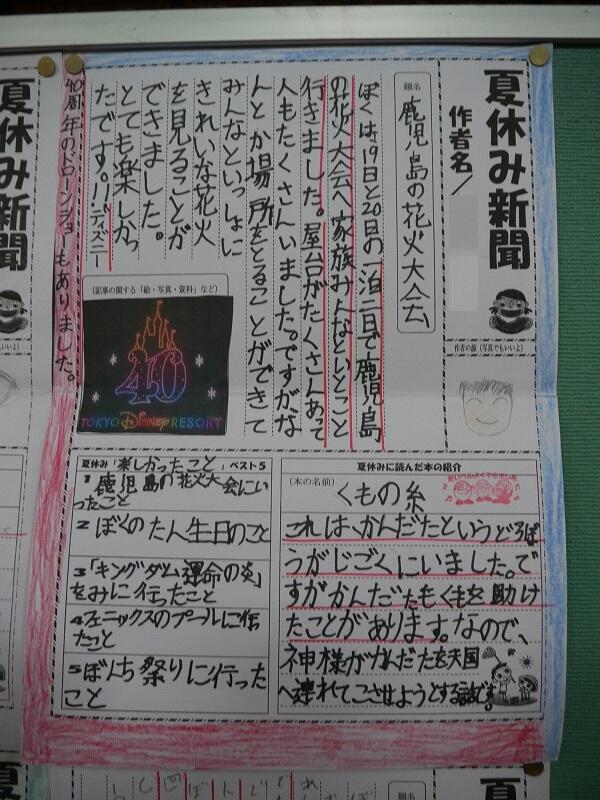 夏休み新聞
作者名／
作者の顔（写真でもいいよ）
題名
鹿児島の花火大会
ぼくは、19日と20日の一泊二日で鹿児島
の花火大会へ家族みんなといとこと
行きました。屋台がたくさんあって
人もたくさんいました。ですがな
んとか場所をとることができて
みんなといっしょに
きれいな花火
を見ることが
できました。
とても楽しかっ
たです。!!ディズニー
40周年のドローンショーもありました。
（記事の関する「絵・写真・資料」など）
40
TOKYO Disney RESORT
夏休み「楽しかったこと」ベスト5
1 鹿児島の花火大会にい
ったこと
2 ぼくのたん生日のこと
3「キングダム運命の炎」
をみに行ったこと
4フェニックスのプールに行っ
たこと
5ぼんち祭りに行った
こと
夏休みに読んだ本の紹介
（本の名前）
くもの糸
これは、かんだたというどろぼ
うがじごくにいました。で
すがかんだたもくもを助け
たことがあります。なので、
神様がかんだたを天国
へ連れてこさせようとする話です。
夏休み新聞
夏
題名